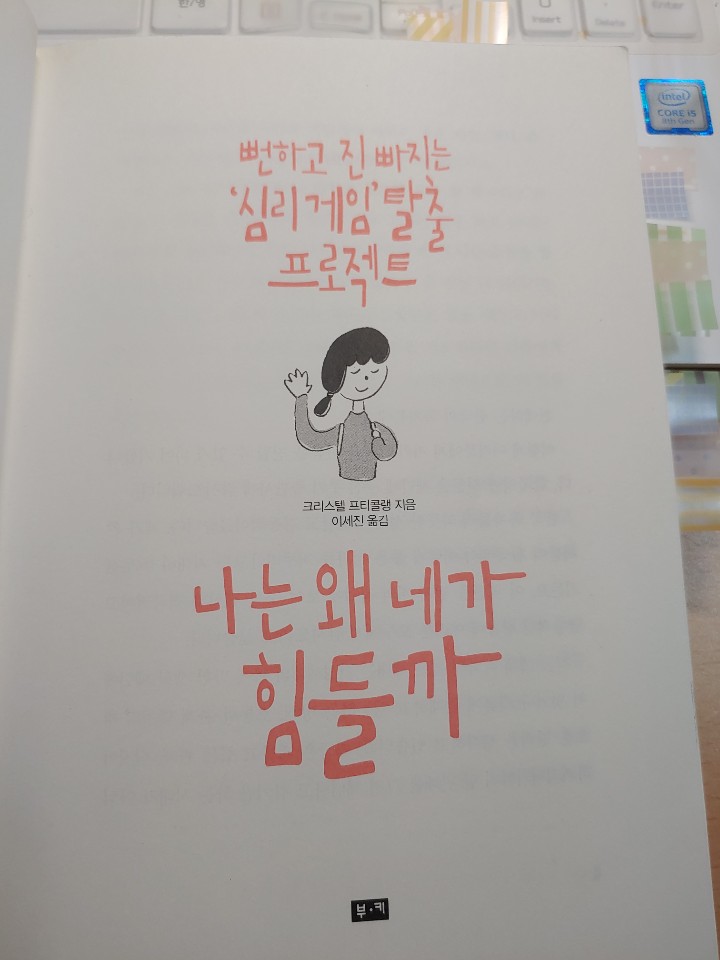 한/영
Insert
Delete
Enter
intel
CORE i5
8th Gen
뻔하고 진 빠지는
'심리 게임' 탈출
프로젝트
크리스텔 프티콜랭 지음
이세진 옮김
나는 왜 네가
힘들까
부·키